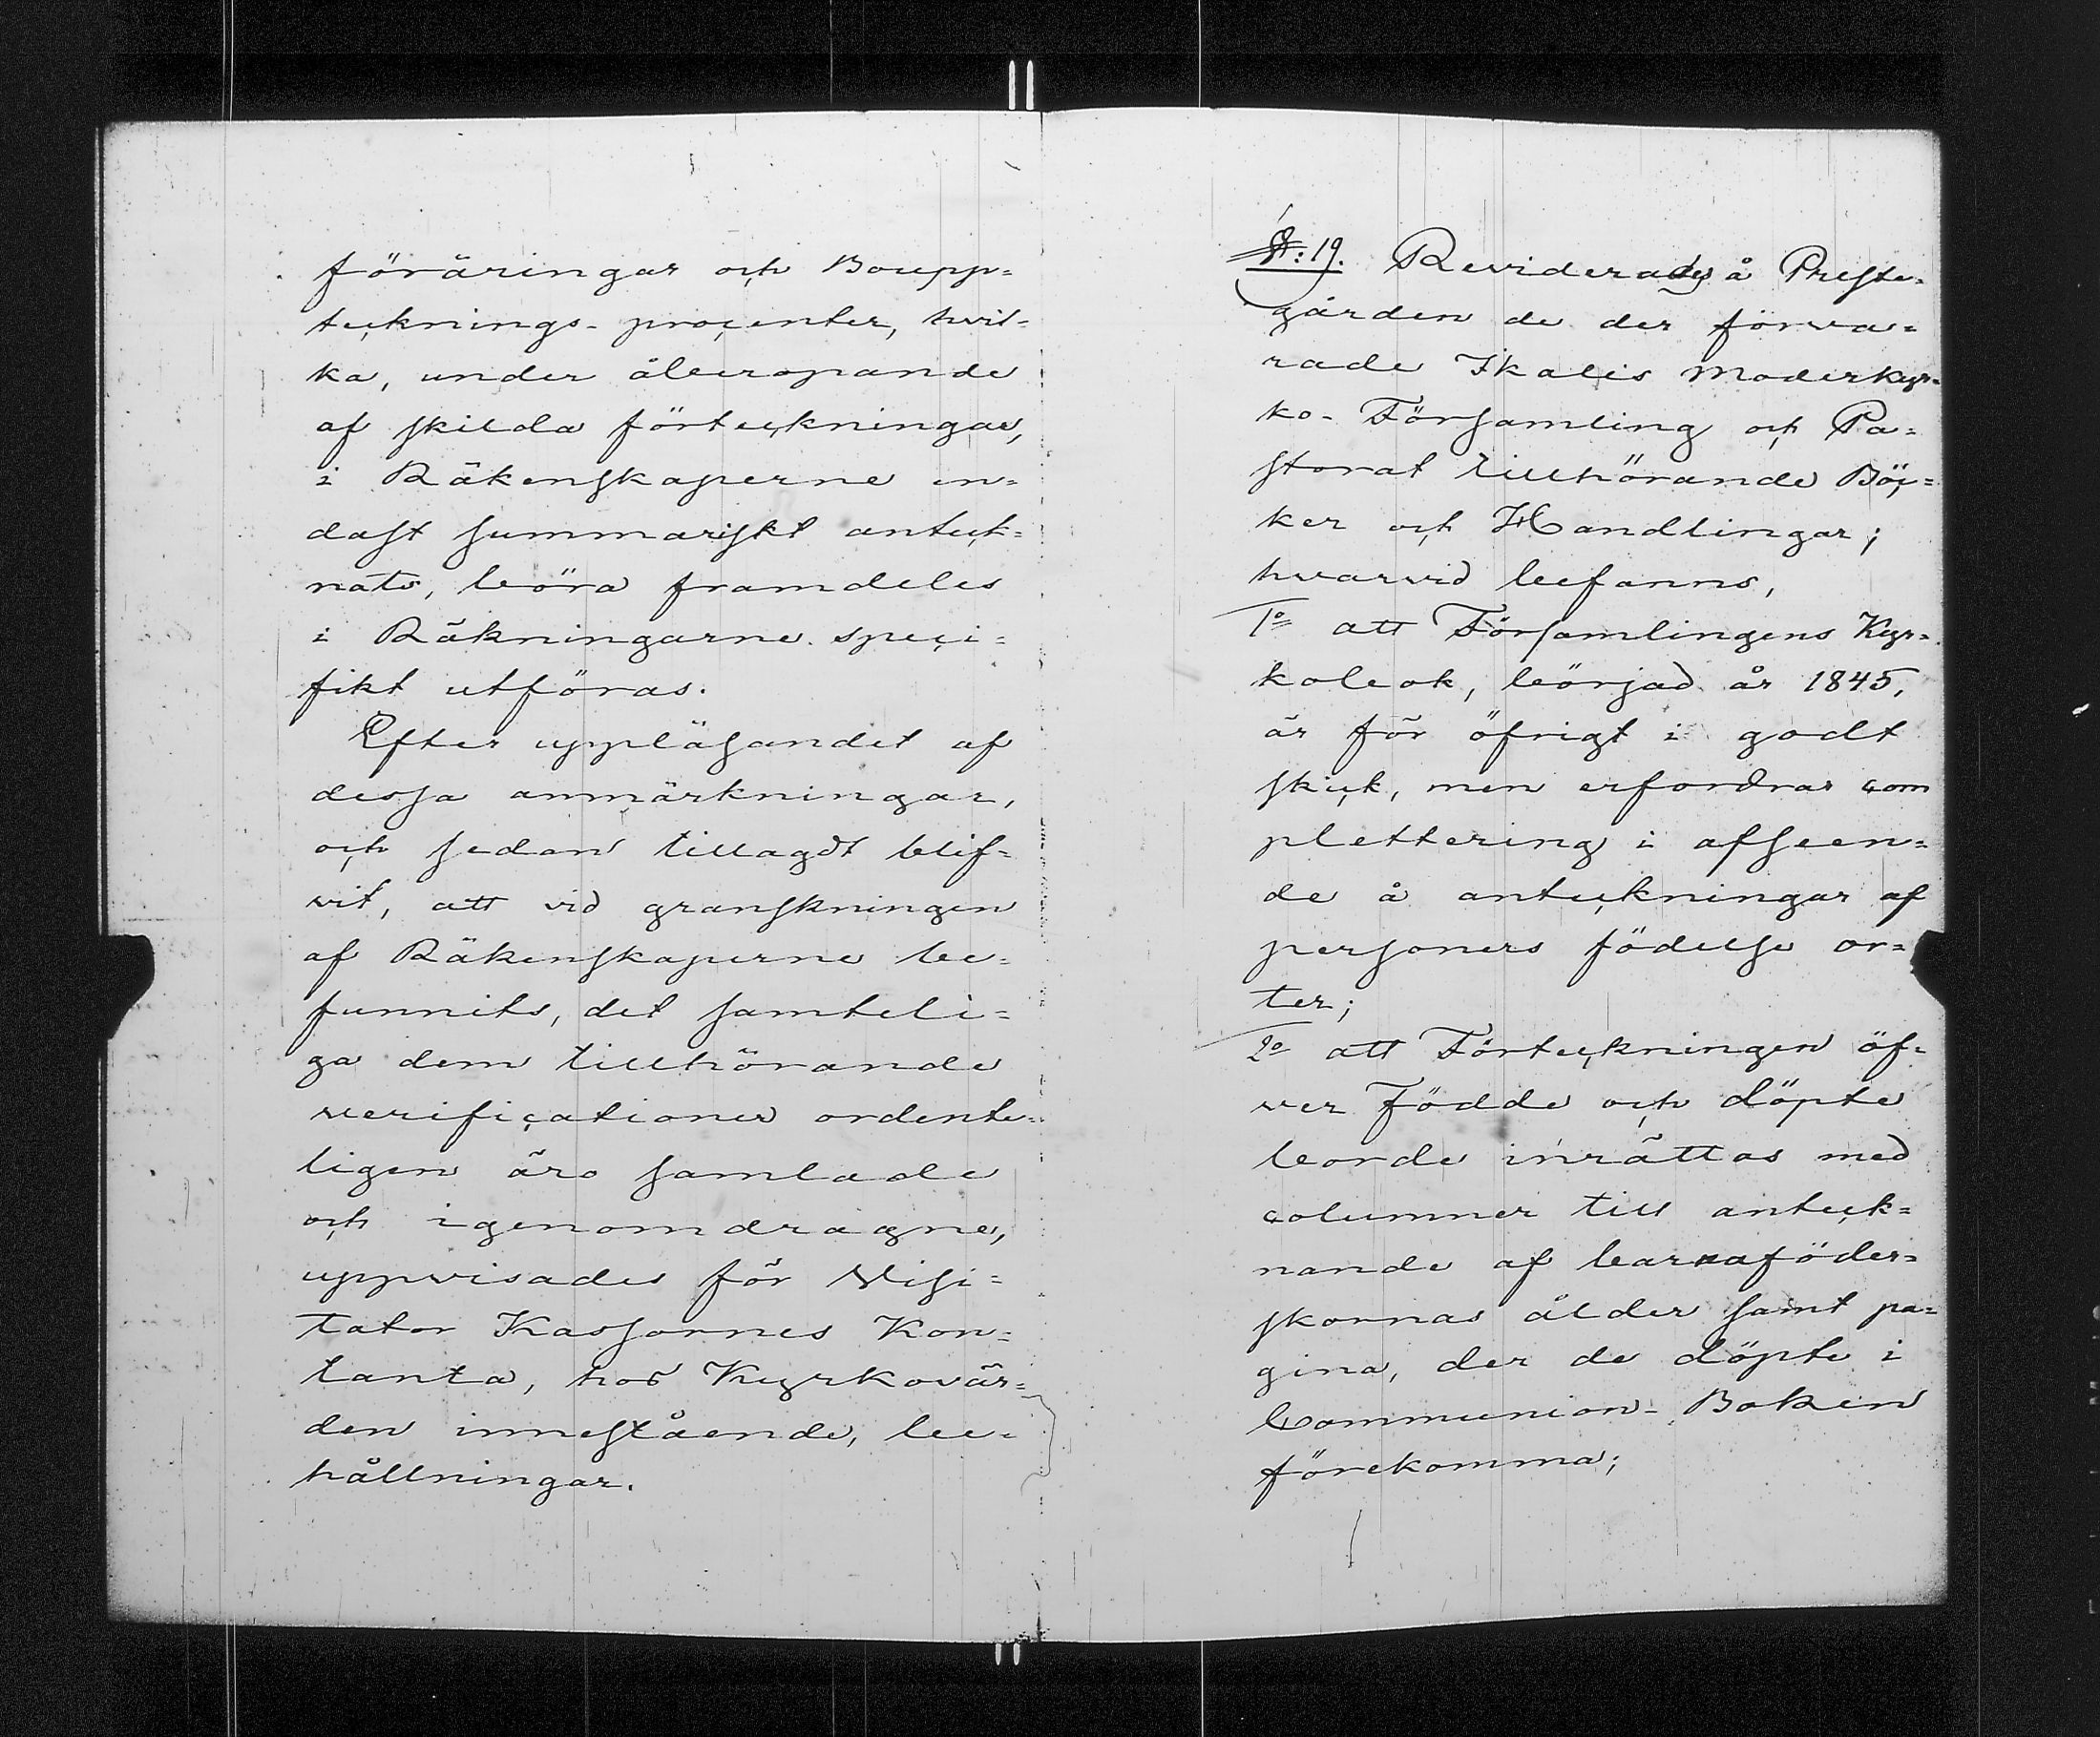 föräringar och Boupp=
tecknings-procenter, hvil=
ka, under åberopande
af skilda förteckningar,
i Räkenskaperne en=
dast summariskt anteck=
nats, böra framdeles
i Räkningarne speci=
fikt utföras.
Efter uppläsandet af
dessa anmärkningar,
och sedan tillagdt blif=
vit, att vid granskningen
af Räkenskaperne be=
funnits, det samteli=
ga dem tillhörande
verificationer ordente=
ligen äro samlade
och igenomdragne,
uppvisades för Visi=
tator Kassornes Kon=
tanta, hos Kyrkovär=
den innestående, be=
hållningar.
§: 19. Reviderades å Preste=
gården de der förva=
rade Ikalis Moderkyr=
ko-Församling och Pa=
storat tillhörande Böc=
ker och Handlingar;
hvarvid befanns,
1o att Församlingens Kyr=
kobok, börjad år 1845,
är för öfrigt i godt
skick, men erfordrar com
plettering i afseen=
de å anteckningar af
personers födelse or=
ter;
2o att Förteckningen öf=
ver Födde och döpte
borde inrättas med
columner till anteck=
nande af barnaföder=
skornas ålder samt pa=
gina, der de döpte i
Communion-Boken
förekomma;